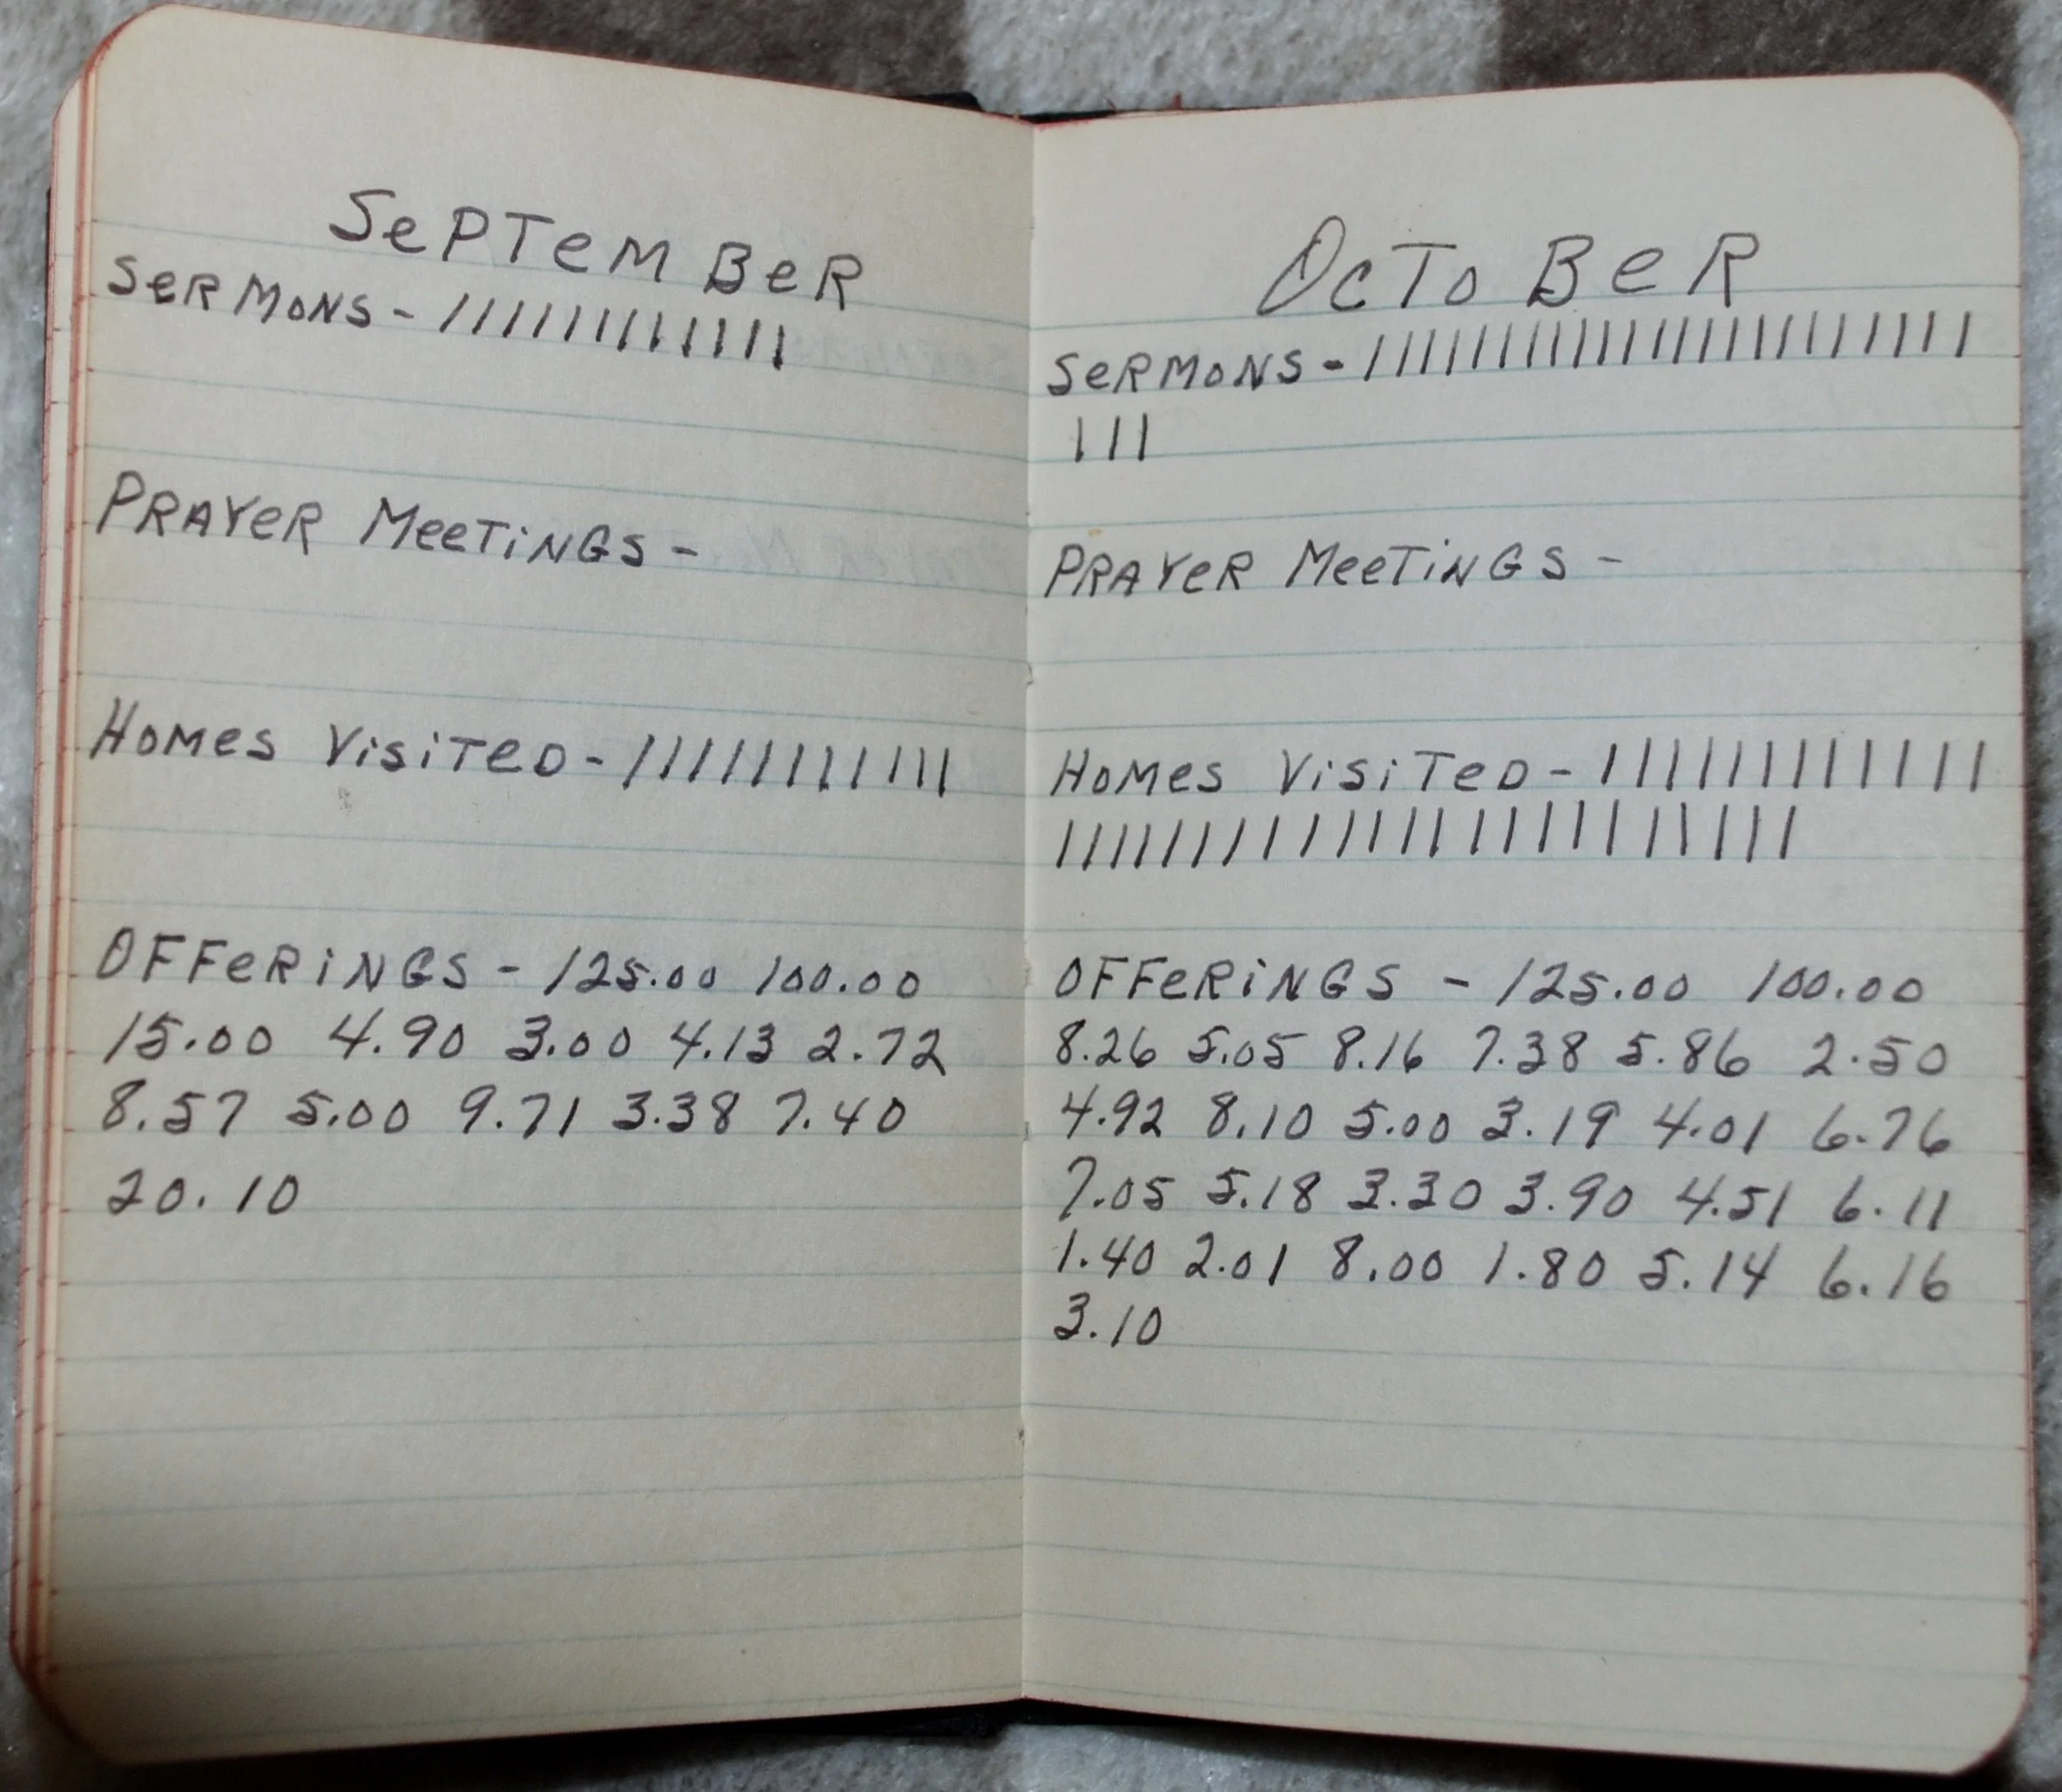 SEPTEMBER
SERMONS - |||||||||||||
PRAYER MEETINGS -
HOMES VISITED - ||||||||||||
OFFERINGS - 125.00 100.00
15.00 4.90 3.00 4.13 2.72
8.57 5.00 9.71 3.38 7.40
20.10
OCTOBER
SERMONS - |||||||||||||||||||||||
|||
PRAYER MEETINGS -
HOMES VISITED - |||||||||||||
|||||||||||||||||||||||
OFFERINGS - 125.00 100.00
8.26 5.05 8.16 7.38 5.86 2.50
4.92 8.10 5.00 3.19 4.01 6.76
7.05 5.18 3.30 3.90 4.51 6.11
1.40 2.01 8.00 1.80 5.14 6.16
3.10